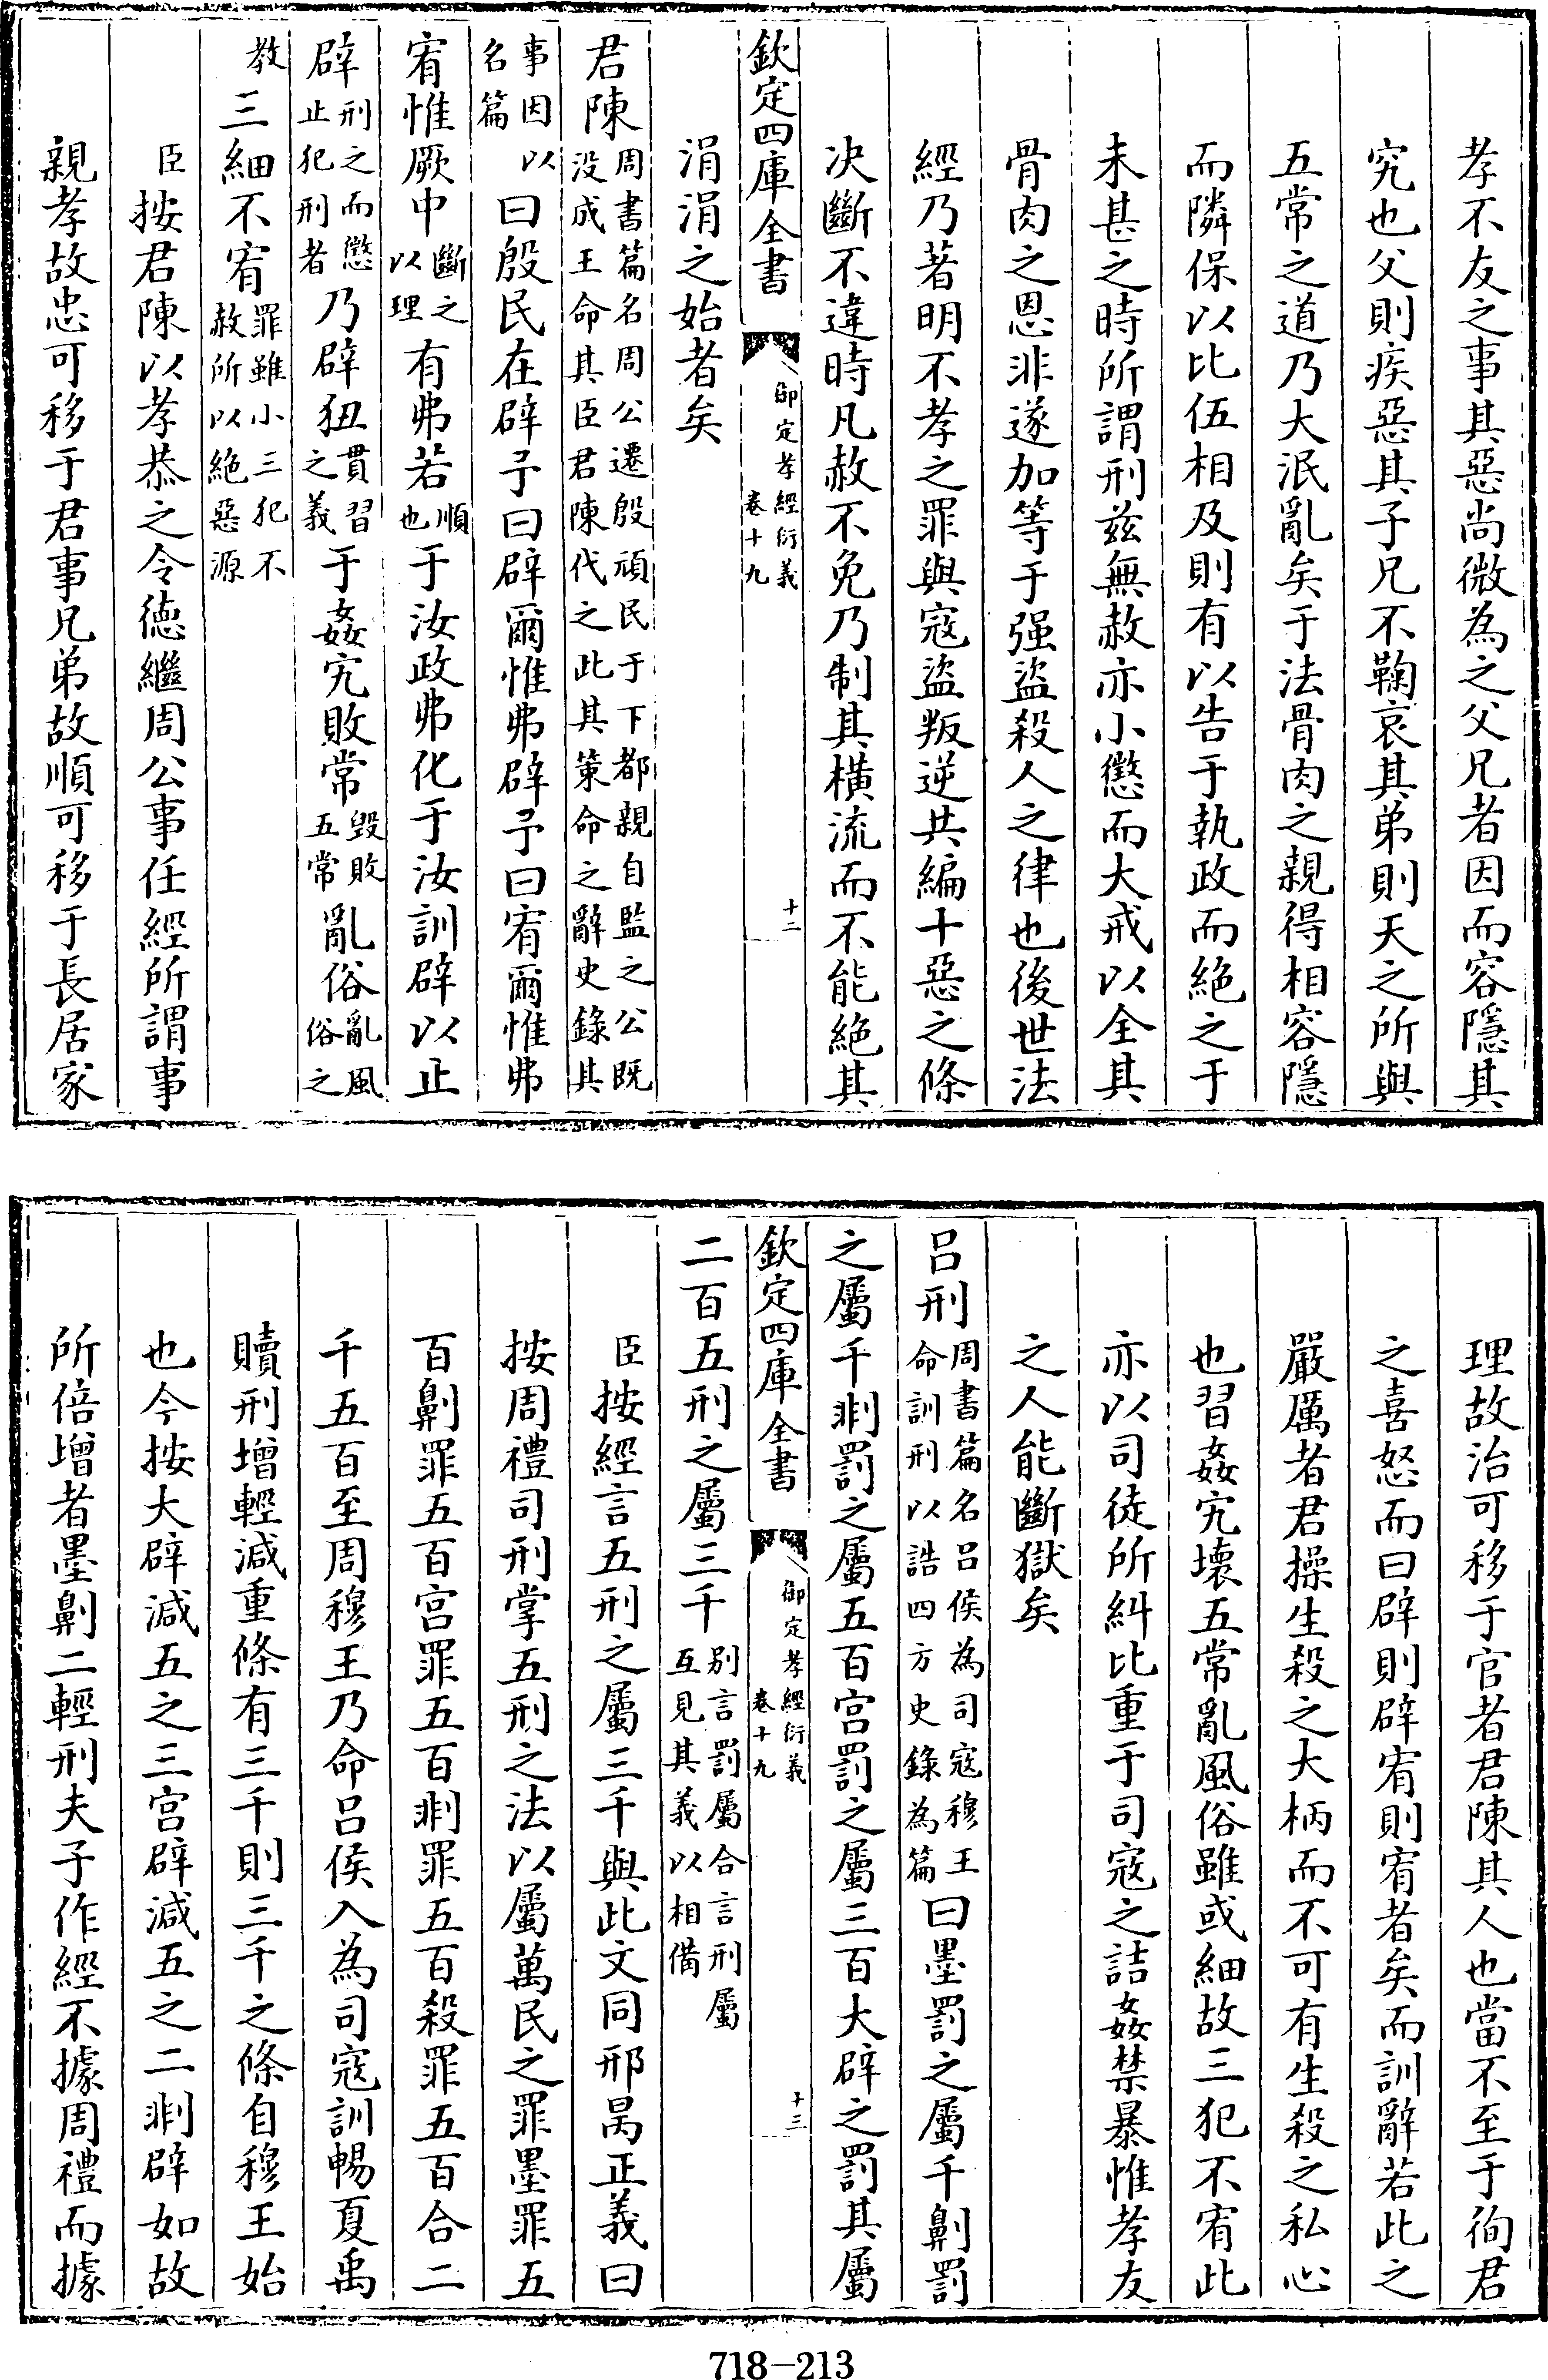 孝不友之事其惡尚微為之父兄者因而容隱其
究也父則疾惡其子兄不鞠哀其弟則天之所與
五常之道乃大泯亂矣于法骨肉之親得相容隱
而隣保以比伍相及則有以告于執政而絶之于
未甚之時所謂刑兹無赦亦小懲而大戒以全其
骨肉之恩非遂加等于强盜殺人之律也後世法
經乃著明不孝之罪與寇盜叛逆共編十惡之條
决斷不違時凡赦不免乃制其橫流而不能絶其
欽定四庫全書
御定孝經衍義
卷十九
十二
涓涓之始者矣
君陳周書篇名周公遷殷頑民于下都親自監之公既
没成王命其臣君陳代之此其策命之辭史錄其
事因以
名篇曰殷民在辟予曰辟爾惟弗辟予曰宥爾惟弗
宥惟厥中斷之
以理有弗若順
也于汝政弗化于汝訓辟以止
辟刑之而懲
止犯刑者乃辟狃貫習
之義于姦宄敗常毀敗
五常亂俗亂風
俗之
教三細不宥罪雖小三犯不
赦所以絶惡源
臣按君陳以孝恭之令德繼周公事任經所謂事
親孝故忠可移于君事兄弟故順可移于長居家
理故治可移于官者君陳其人也當不至于徇君
之喜怒而曰辟則辟宥則宥者矣而訓辭若此之
嚴厲者君操生殺之大柄而不可有生殺之私心
也習姦宄壞五常亂風俗雖或細故三犯不宥此
亦以司徒所糾比重于司寇之詰姦禁暴惟孝友
之人能斷獄矣
吕刑周書篇名吕侯為司寇穆王
命訓刑以誥四方史錄為篇曰墨罰之屬千劓罰
之屬千剕罰之屬五百宫罰之屬三百大辟之罰其屬
欽定四庫全書
御定孝經衍義
卷十九
十三
二百五刑之屬三千别言罰屬合言刑屬
互見其義以相備
臣按經言五刑之屬三千與此文同邢昺正義曰
按周禮司刑掌五刑之法以屬萬民之罪墨罪五
百劓罪五百宫罪五百剕罪五百殺罪五百合二
千五百至周穆王乃命吕侯入為司寇訓暢夏禹
贖刑增輕減重條有三千則三千之條自穆王始
也今按大辟減五之三宫辟減五之二剕辟如故
所倍增者墨劓二輕刑夫子作經不據周禮而據
718-213